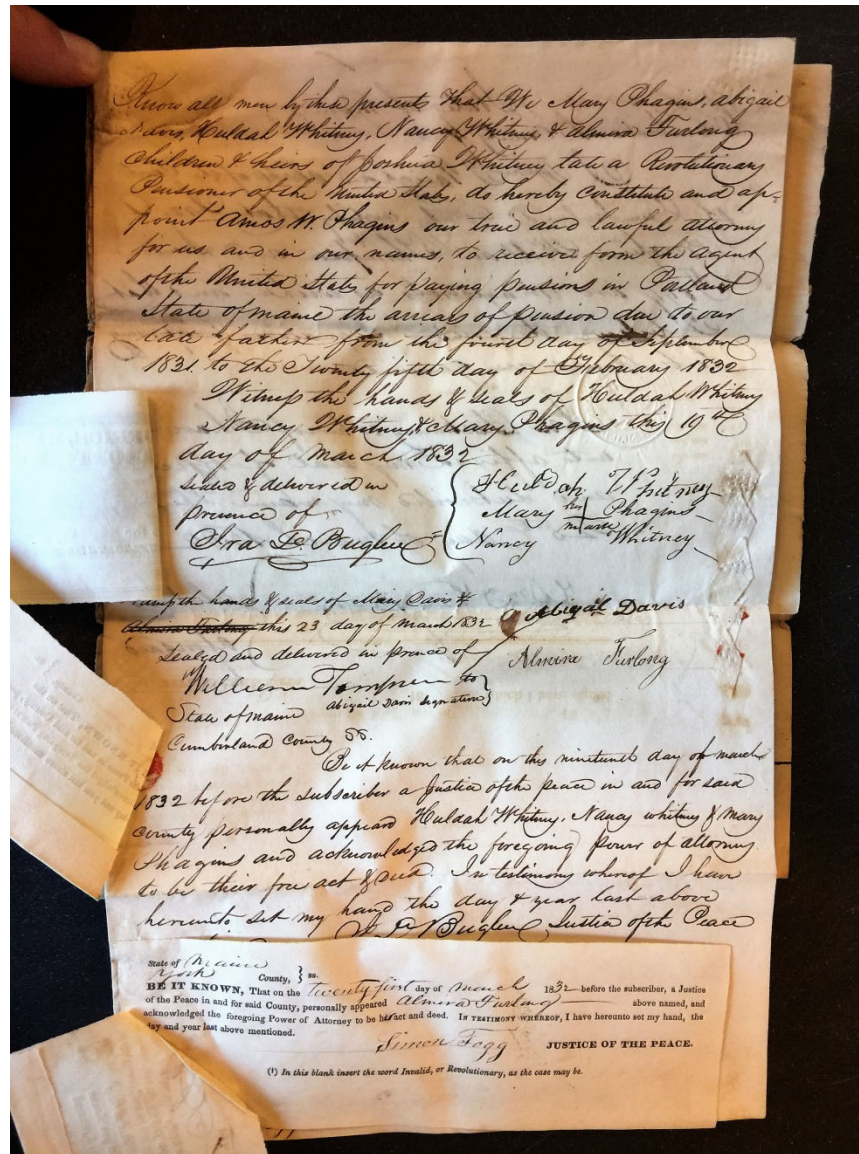 Know all men by these presents that We Mary Phagins, abigail
Davis, Huldah Whitney, Nancy Whitney, & Almira Furlong
Children & heirs of Joshua Whitney late a Revolutionary
Pensioner of the United States, do hereby constitute and ap-
point Amos W. Phagins our true and lawful attorney
for us and in our names, to receive from the agent
of the United States for paying pensions in Portland
State of maine the arrears of pension due to our
late father from the fourth day of September
1831. to the Twenty fifth day of February 1832
Witness the hands & seals of Huldah Whitney
Nancy Whitney, & Mary Phagins this 19th
day of march 1832
sealed & delivered in
presence of
Huldah Whitney
Mary her mark Phagins
Nancy Whitney
Ira
the hands & seals of Mary Davis &
Almira Furlong this 23 day of march 1832
Abigal Davis
Sealed and delivered in presence of
Almine Furlong
William to
abigail Davis signature
State of maine
Cumberland County SS.
Be it known that on this nineteenth day of march
1832 before the subscriber a Justice of the peace in and for said
county personally appeard Huldah Whitney, Nancy whitney & mary
Phagins and acknowledged the foregoing Power of attorney
to be their free act & deed. In testimony whereof I have
hereunto set my hand the day & year last above
Justice of the Peace
State of Maine
York County, } ss.
BE IT KNOWN, That on the twenty first day of march 1832 before the subscriber, a Justice
of the Peace in and for said County, personally appeared Almira Furlong above named, and
acknowledged the foregoing Power of Attorney to be her act and deed. IN TESTIMONY WHEREOF, I have hereunto set my hand, the
day and year last above mentioned.
Simon Fogg JUSTICE OF THE PEACE.
(†) In this blank insert the word Invalid, or Revolutionary, as the case may be.